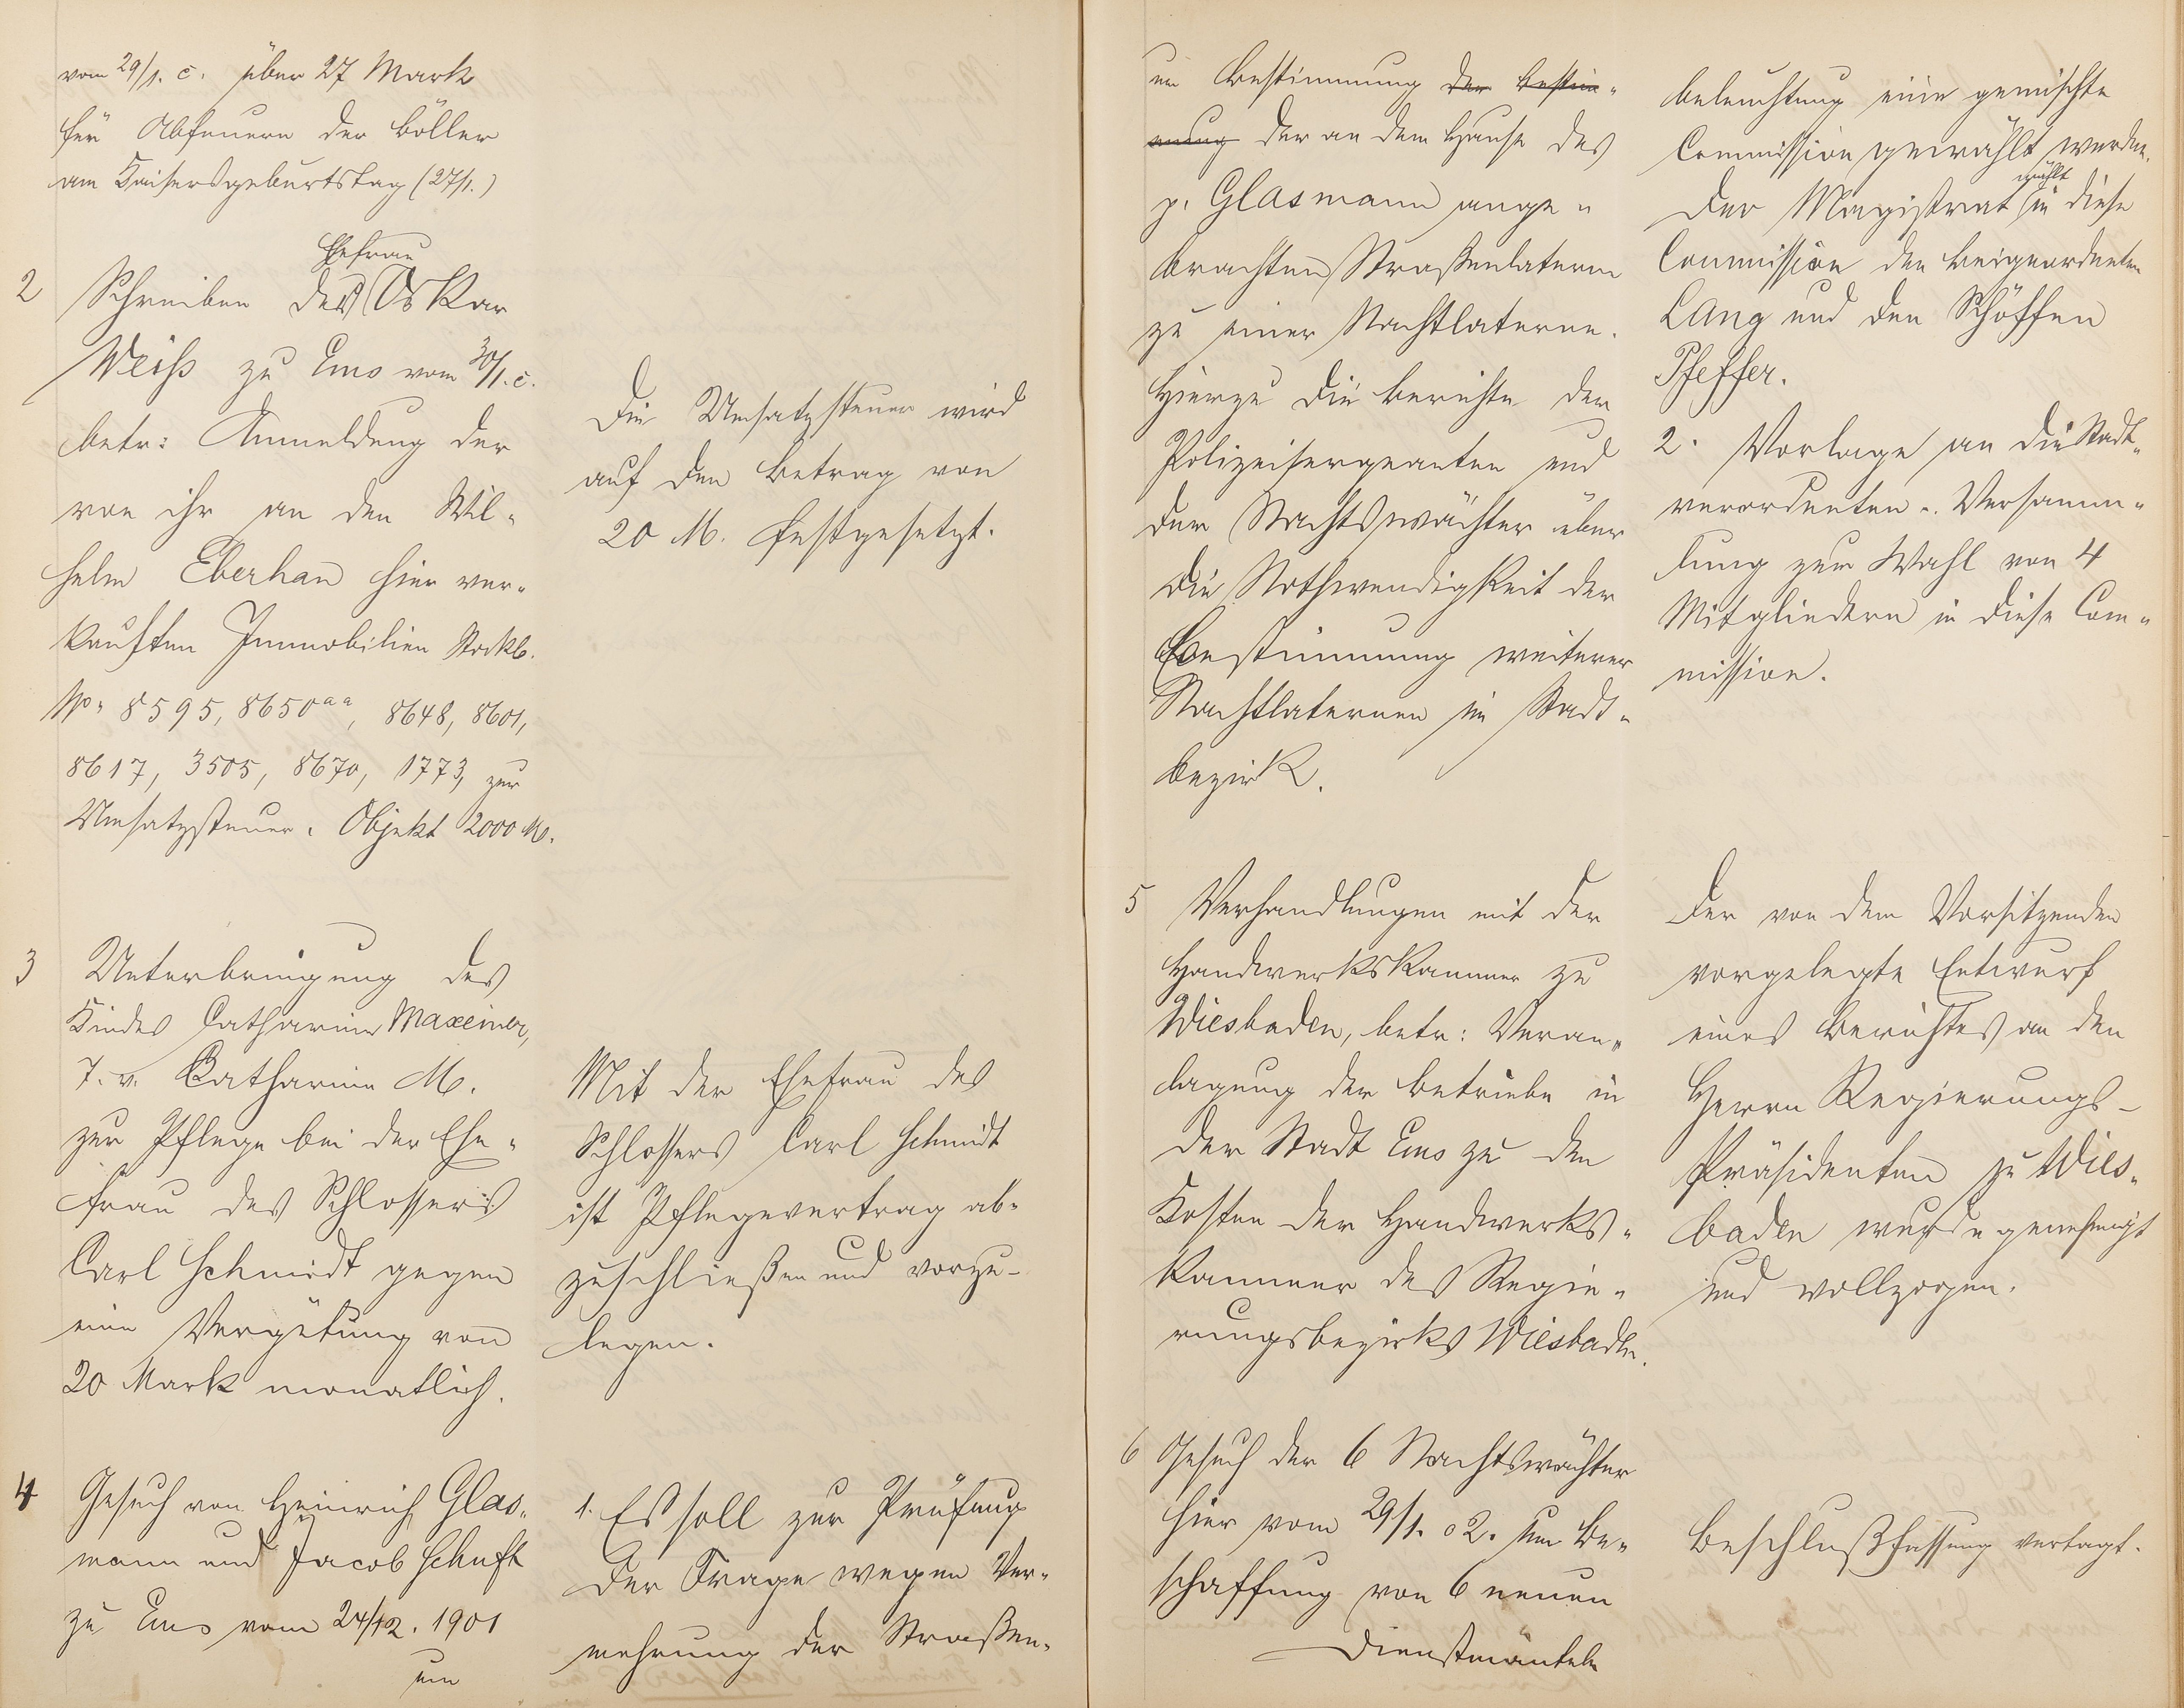 vom 29/1. c. über 27 Mark
für Abfeuern der Böller
am Kaisersgeburtstag (27/1.)
Ehefrau
2 Schreiben des Oskar
Weiss zu Ems vom 30/1. c.
betr: Anmeldung der
von ihr an den Wil-
helm Eberhan hier ver-
kauften Immobilien Stockb.
No. 8595, 8650aa, 8648, 8601,
8617, 3505, 8670, 1773, zur
Umsatzsteuer. Objekt 2000 M.
Die Umsatzsteuer wird
auf den Betrag von
20 M. festgesetzt.
3 Unterbringung des
Kindes Catharina Maxeiner,
T. v. Catharina M.
zur Pflege bei der Ehe-
frau des Schlossers
Carl Schmidt gegen
eine Vergütung von
20 Mark monatlich.
Mit der Ehefrau des
Schlossers Carl Schmidt
ist Pflegevertrag ab-
zuschließen und vorzu-
legen.
4 Gesuch von Heinrich Glas-
mann und Jacob Schuft
zu Ems vom 24/12. 1901
um
1. Es soll zur Prüfung
der Frage wegen Ver-
mehrung der Straßen-
um Bestimmung der Bestim-
mung der an dem Hause des
p. Glasmann ange-
brachten Straßenlaterne
zu einer Nachtlaterne.
Hierzu die Berichte der
Polizeisergeanten und
der Nachtswächter über
die Nothwendigkeit der
Bestimmung weiterer
Nachtlaternen im Stadt-
bezirk.
beleuchtung eine gemischte
Commission gewählt werden.
wählt
Der Magistrat in diese
Commission den Beigeordneten
Lang und den Schöffen
Pfeffer.
2. Vorlage an die Stadt-
verordneten-Versamm-
lung zur Wahl von 4
Mitgliedern in diese Com-
mission.
5 Verhandlungen mit der
Handwerkskammer zu
Wiesbaden, betr: Veran-
lagung der Betriebe in
der Stadt Ems zu den
Kosten der Handwerks-
kammer des Regie-
rungsbezirks Wiesbaden.
Der von dem Vorsitzenden
vorgelegte Entwurf
eines Berichtes an den
Herrn Regierungs-
Präsidenten zu Wies-
baden wurde genehmigt
und vollzogen.
6 Gesuch der 6 Nachtswächter
hier vom 29/1. 02. um Be-
schaffung von 6 neuen
Dienstmänteln
Beschlußfassung vertagt.